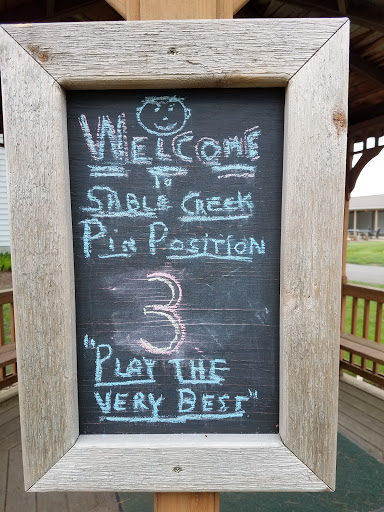 WELCOME
TO
SABLE CREEK
PIN POSITION
3
"PLAY THE
VERY BEST"